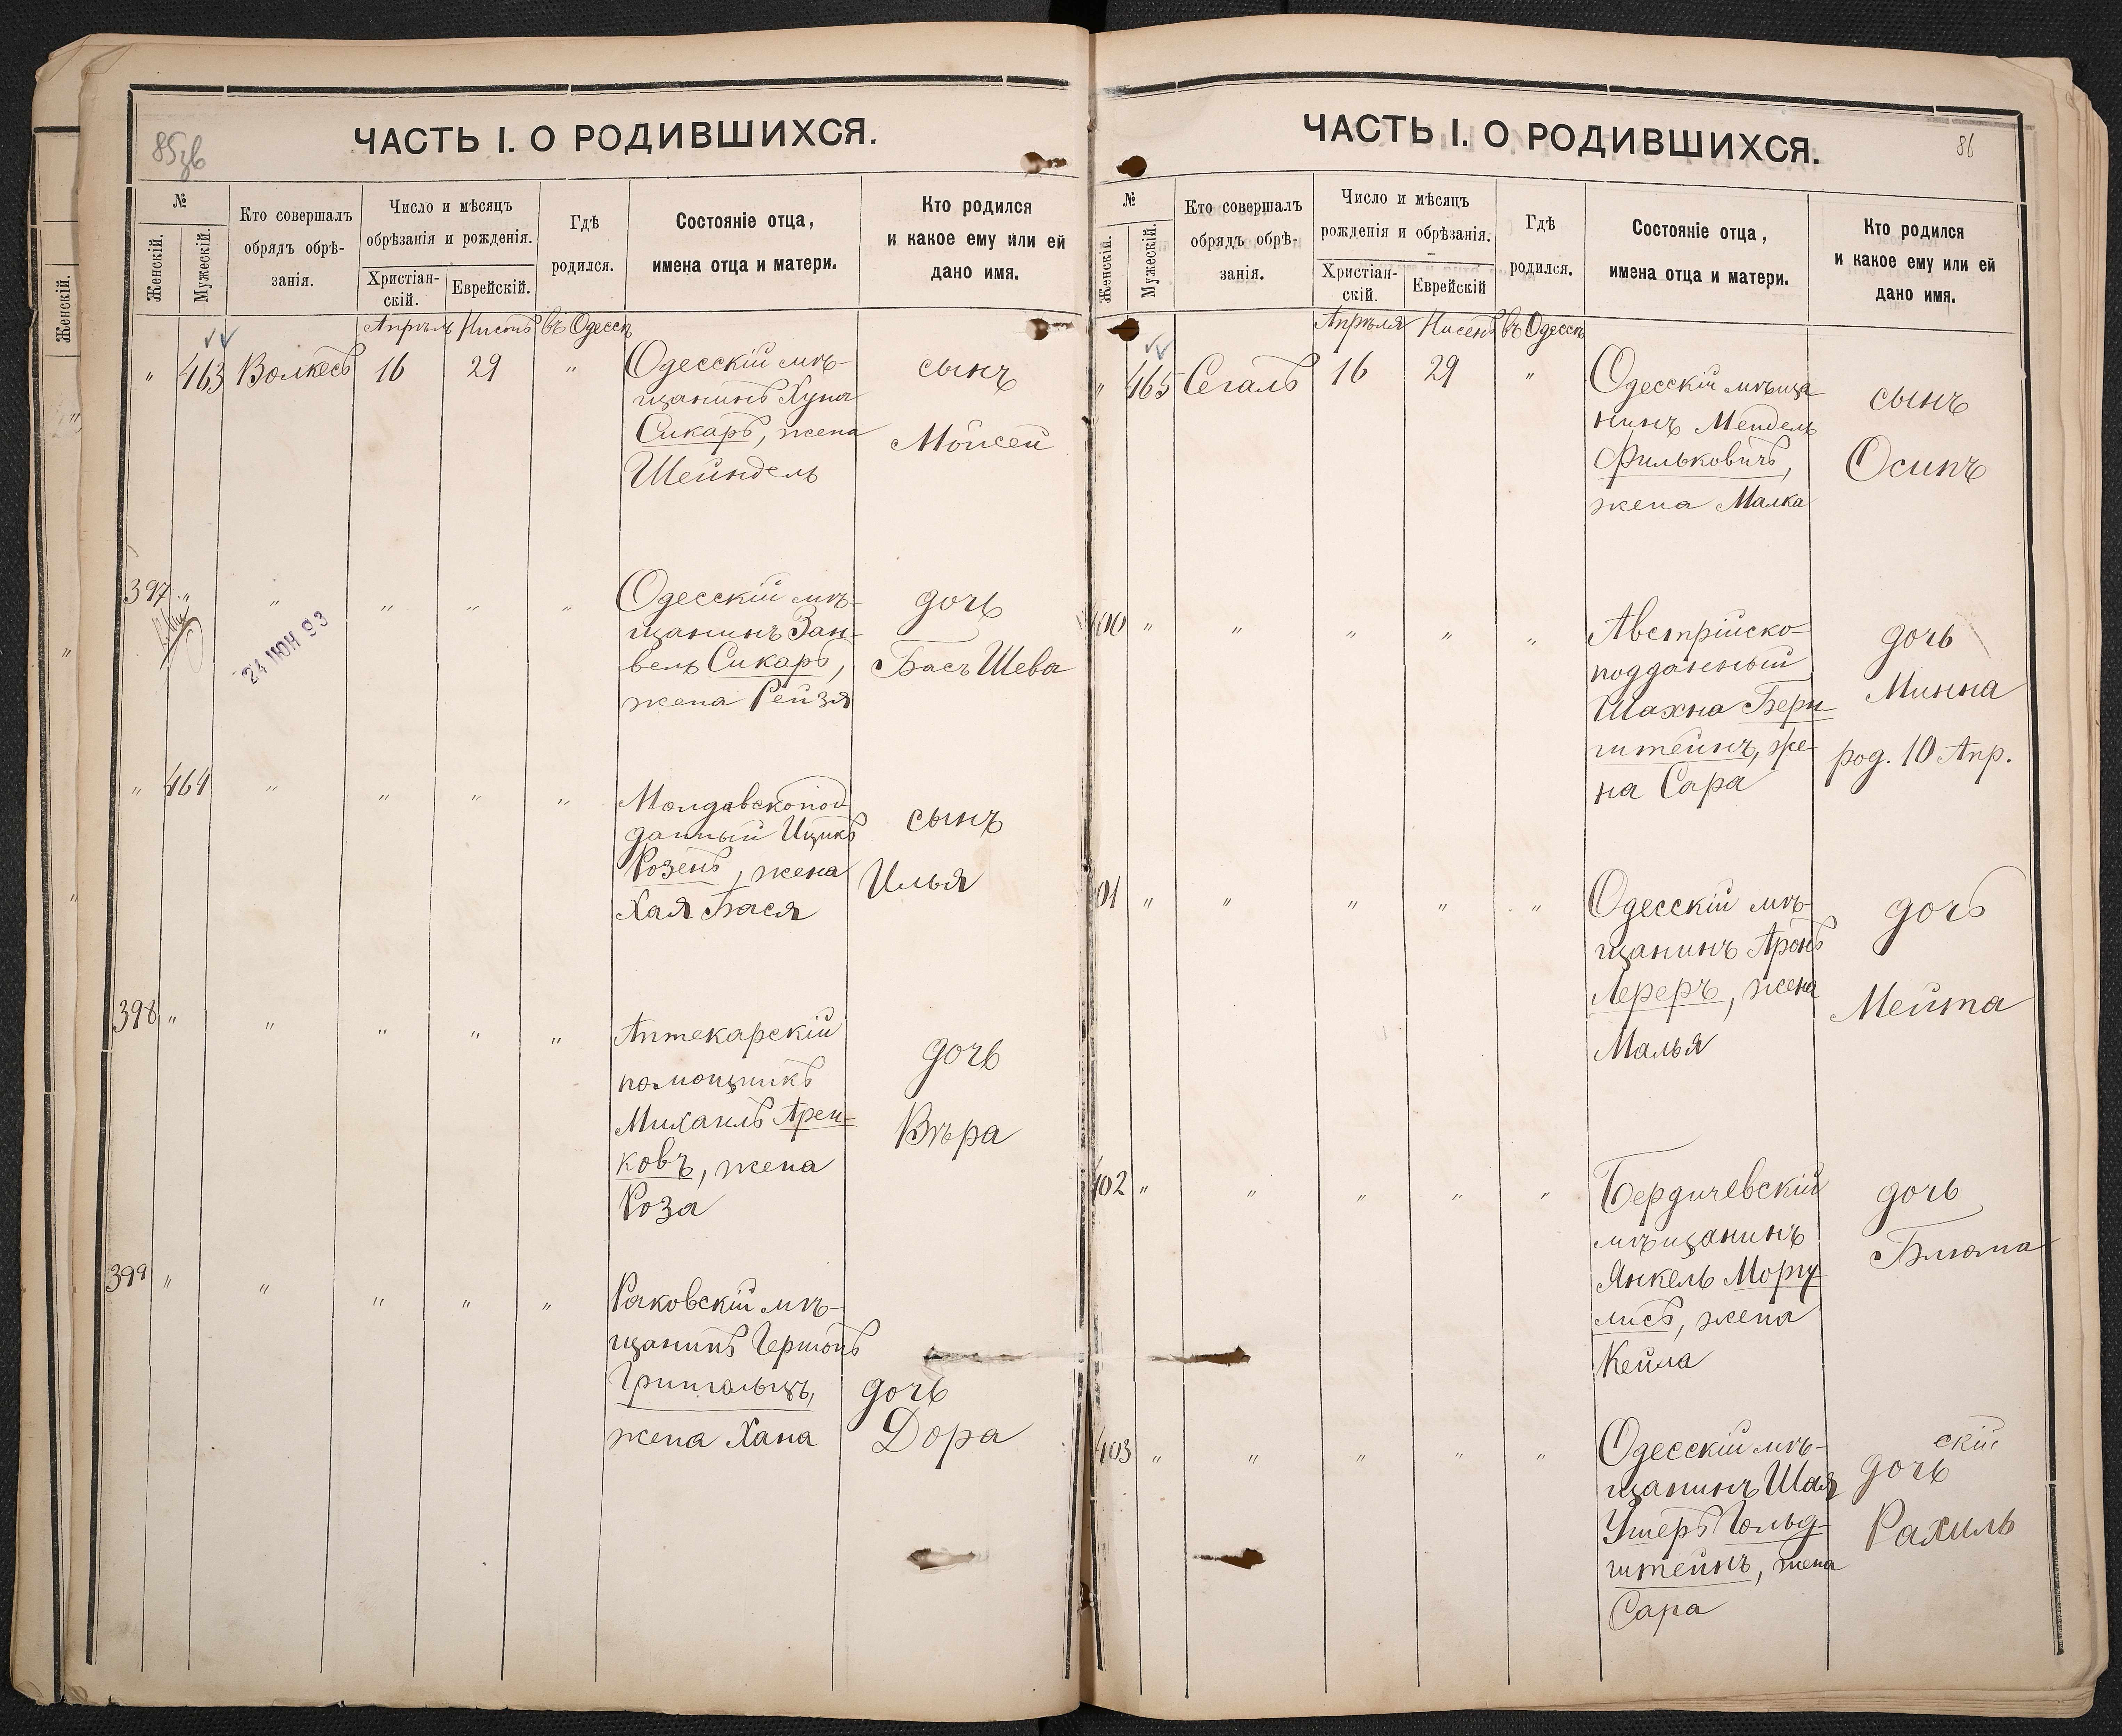 85зв
ЧАСТЬ I. О РОДИВШИХСЯ.
№
Женскій.
Мужескій.
Кто совершалъ
обрядъ обрѣ-
занія.
Число и мѣсяцъ
обрѣзанія и рожденія.
Христіан-
скій.
Еврейскій.
Гдѣ
родился.
Состояніе отца,
имена отца и матери.
Кто родился
и какое ему или ей
дано имя.
Апрѣль Нисонъ въ Одессѣ
" 463 Волкесъ 16 29 "
Одесскій мѣ-
щанинъ Хуна
Сикаръ, жена
Шейндель
сынъ
Мойсей
397 " " " " "
24 ИЮН 93
Одесскій мѣ-
щанинъ Зан-
вель Сикаръ,
жена Рейзя
дочь
Бась Шева
" 464 " " " "
Молдавскопод
данный Ицикъ
Розенъ, жена
Хая Бася
сынъ
Илья
398 " " " " "
Аптекарскій
помощникъ
Михаилъ Арен-
ковъ, жена
Роза
дочь
Вѣра
399 " " " " "
Раковскій мѣ-
щанинъ Гершонъ
Грингольцъ,
жена Хана
дочь
Дора
Женскій.
86
ЧАСТЬ I. О РОДИВШИХСЯ.
№
Женскій.
Мужескій.
Кто совершалъ
обрядъ обрѣ-
занія.
Число и мѣсяцъ
рожденія и обрѣзанія.
Христіан-
скій.
Еврейскій
Гдѣ
родился.
Состояніе отца,
имена отца и матери.
Кто родился
и какое ему или ей
дано имя.
Апрѣля Нисенъ въ Одессѣ
" 465 Сегалъ 16 29 "
Одесскій мѣща
нинъ Мендель
Фильковичъ,
жена Малка
сынъ
Осипъ
400 " " " " "
Австрійско-
подданный
Шахна Берн-
штейнъ, же-
на Сара
дочь
Минна
род. 10 Апр.
01 " " " " "
Одесскій мѣ-
щанинъ Аронъ
Лереръ, жена
Малья
дочь
Мейта
402 " " " " "
Бердичевскій
мѣщанинъ
Янкель Моргу
лисъ, жена
Кейла
дочь
Блюма
403 " " " " "
Одесскій мѣ-
щанинъ Шая
Ушеръ Гольд-
штейнъ, жена
Сара
скій
дочь
Рахиль